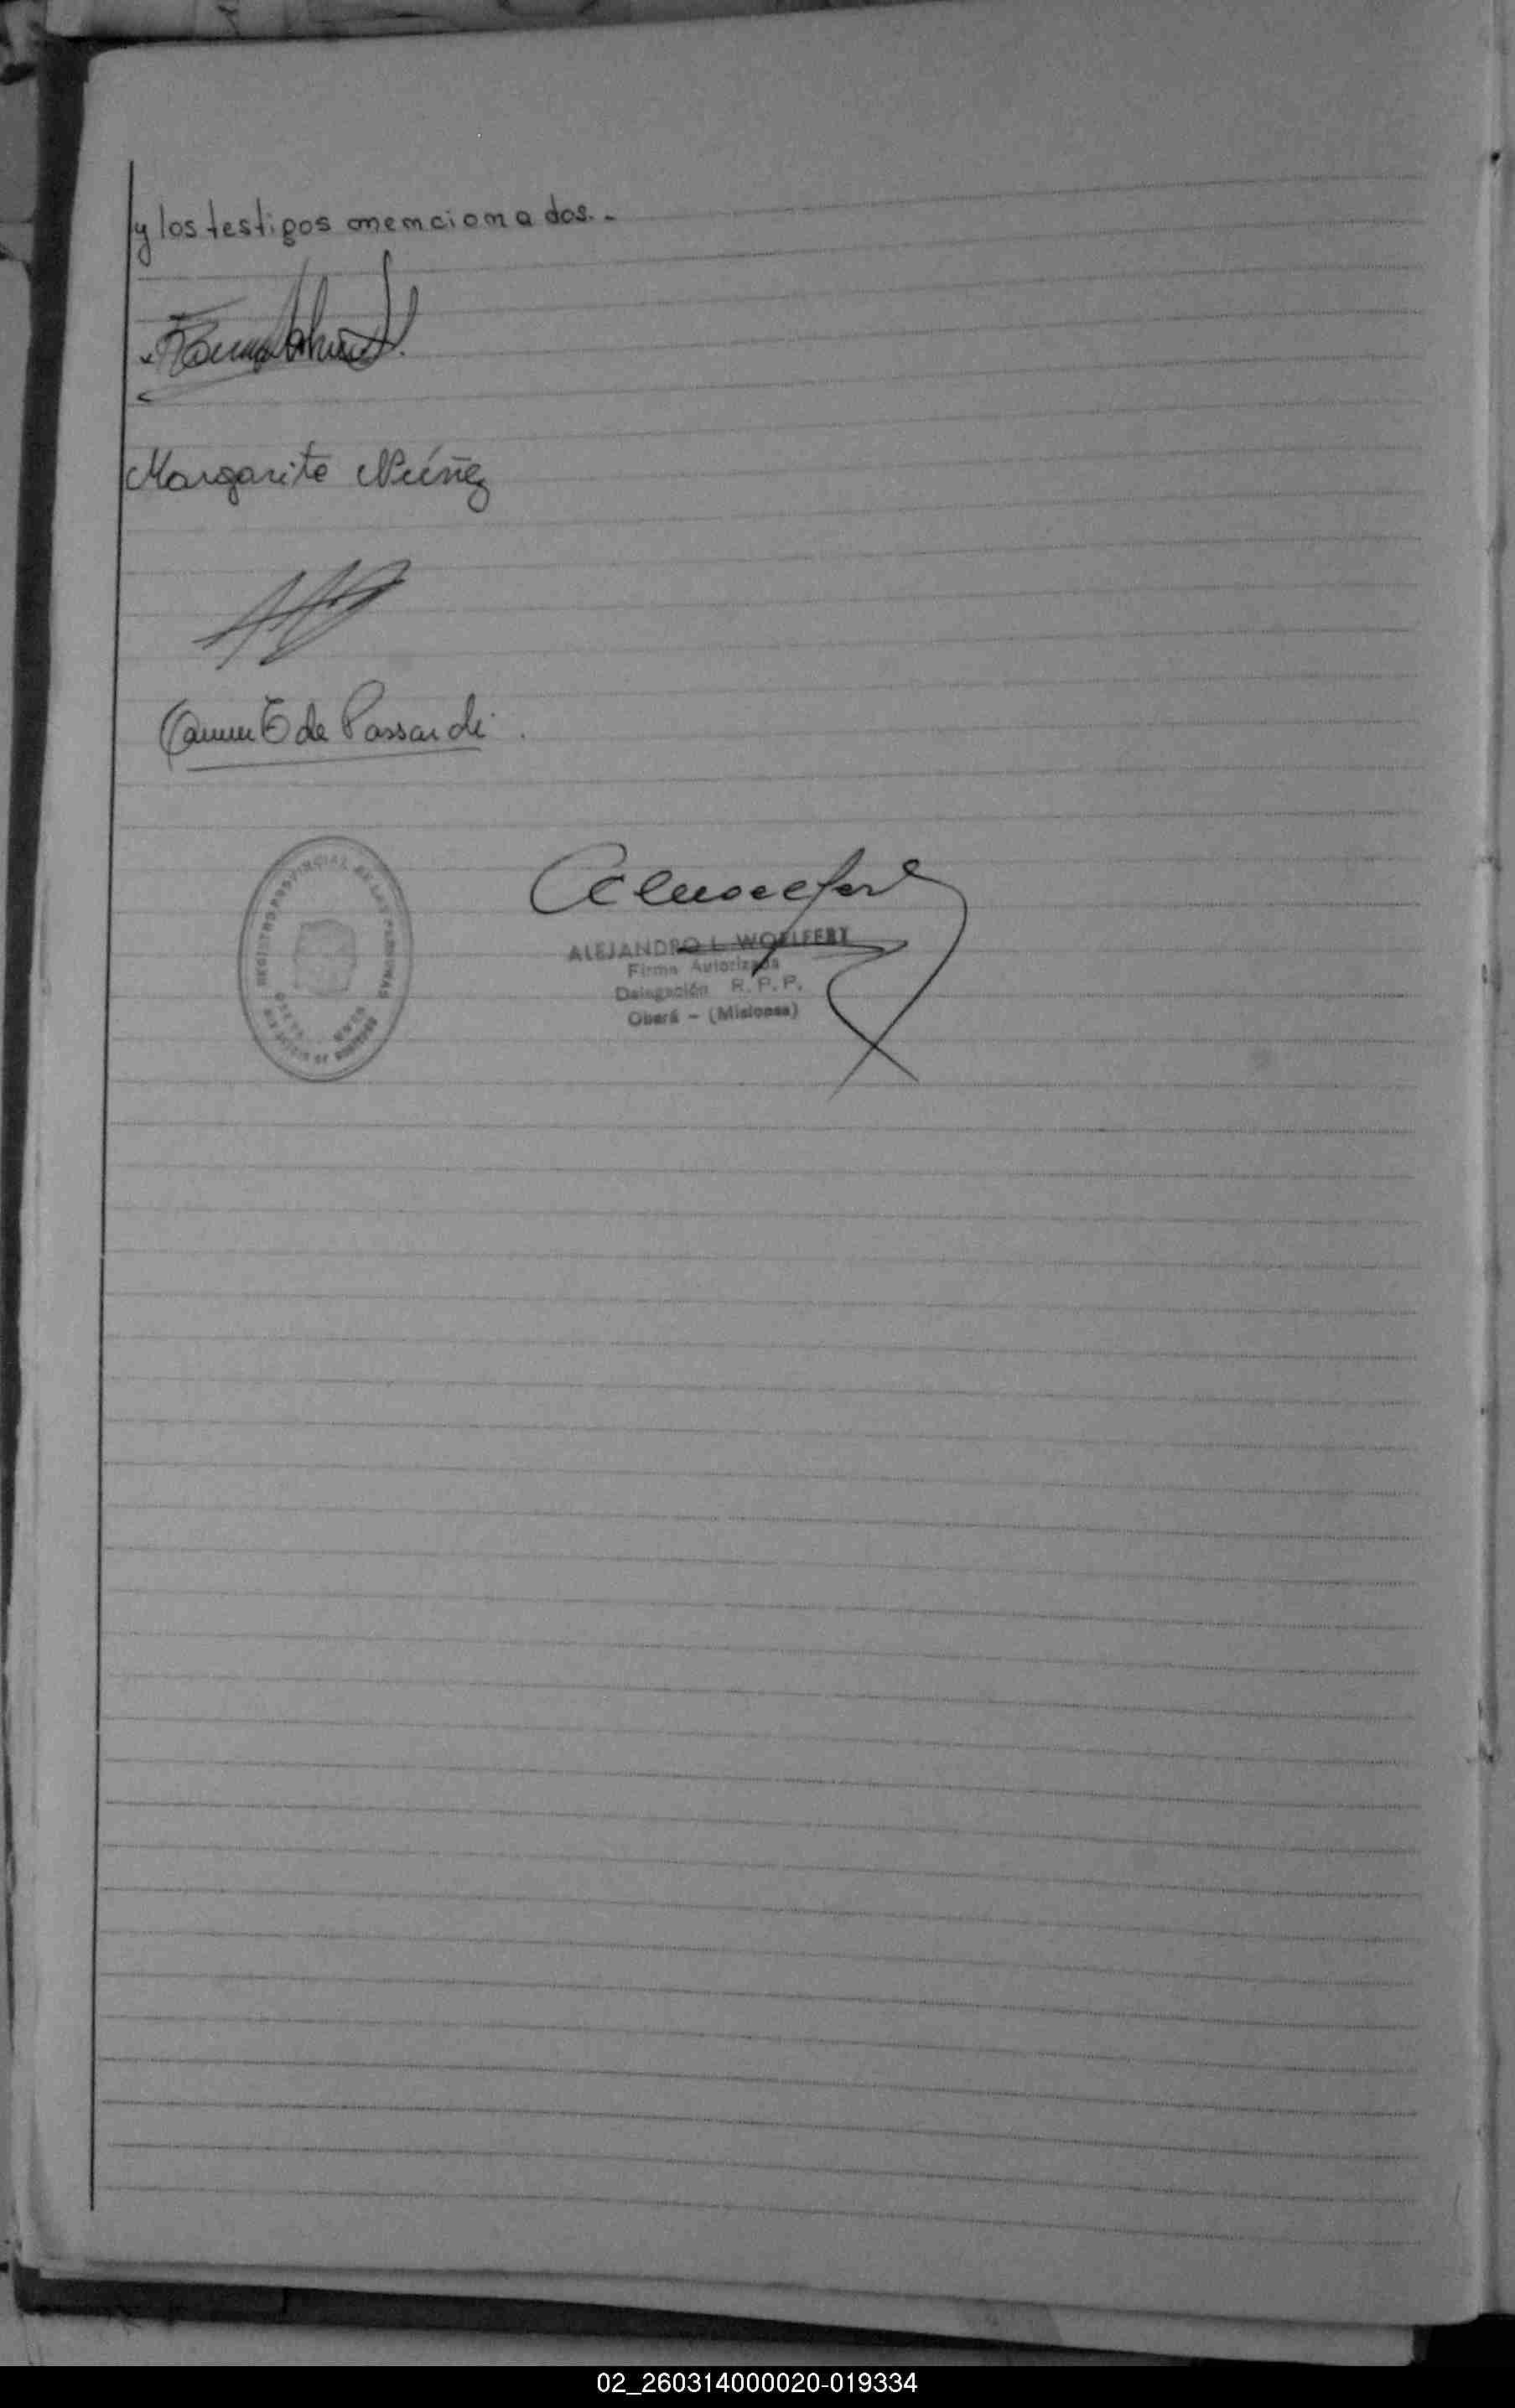 y los testigos mencionados.-
Margarita Núñez
de Passardi
REGISTRO PROVINCIAL DE LAS PERSONAS
ALEJANDRO L. WOELFERT
Firma Autorizada
Delegación R. P. P.
Oberá - (Misiones)
02_260314000020-019334